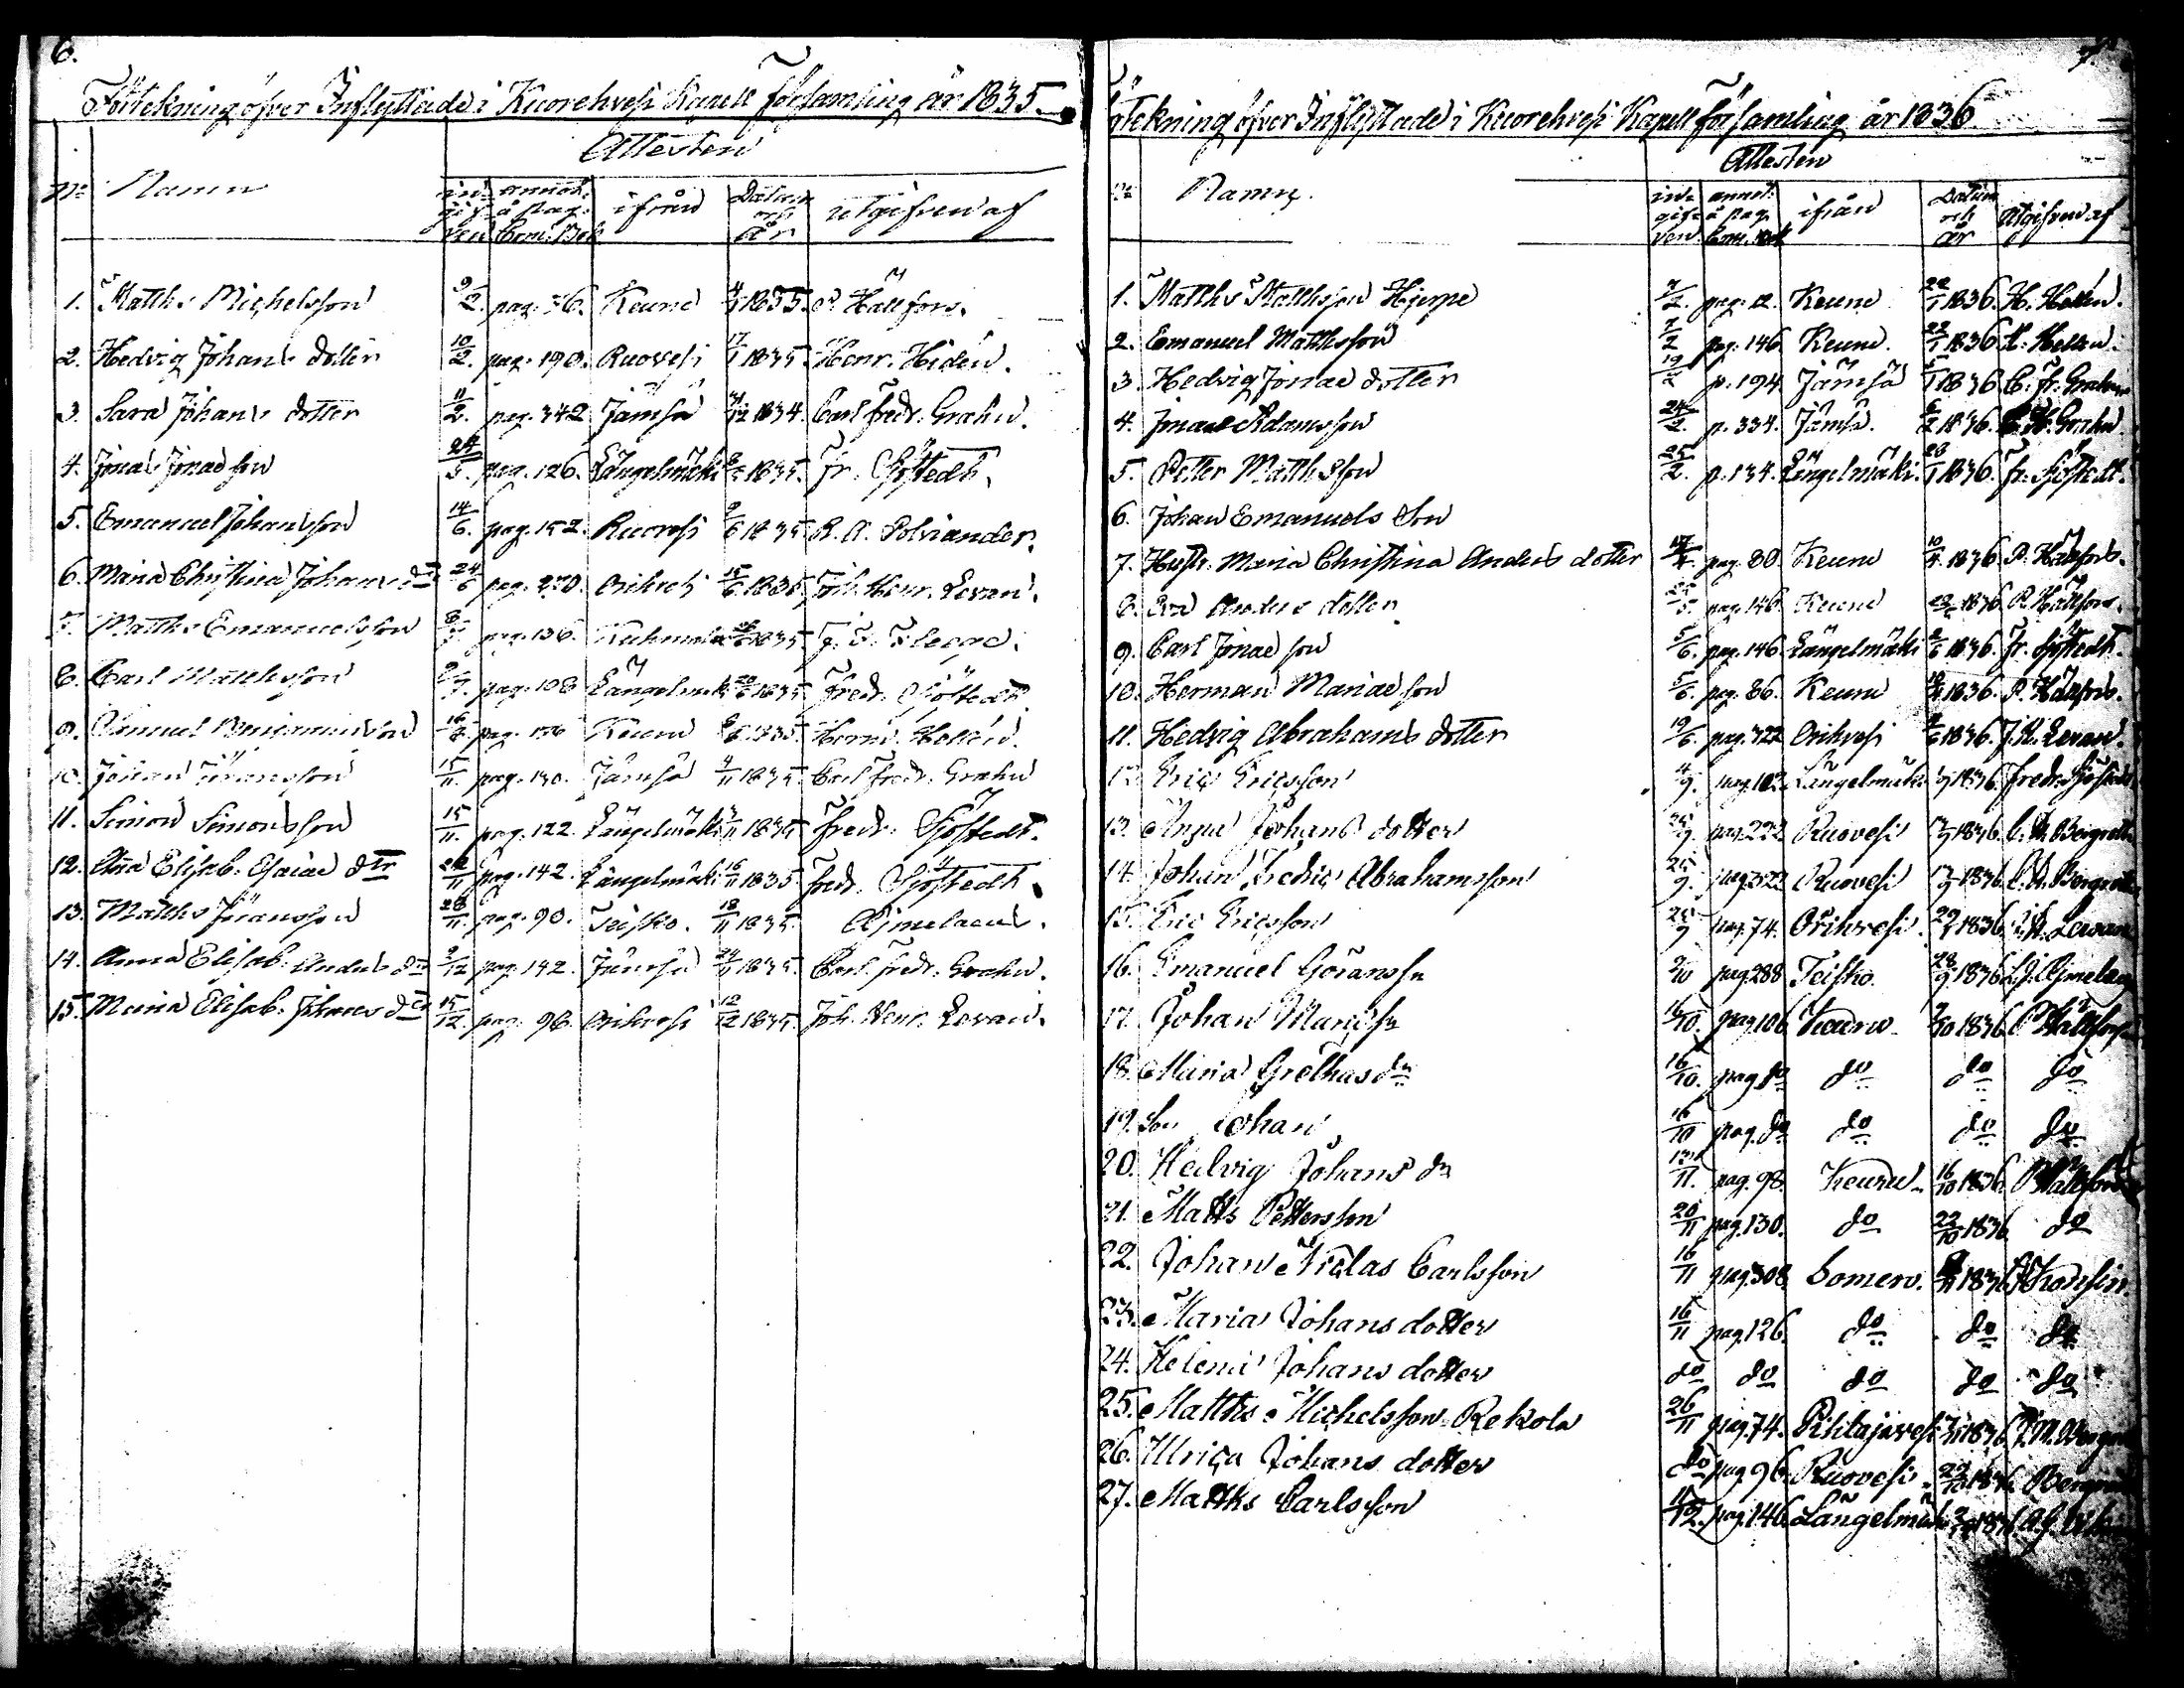 6.
Förtekning öfver Inflyttade i Kuorehvesi Kapell Församling år 1835.
Attesten
No Namn ingifven annot. å pag. Com. Bok ifrån Datum och år utgifven af
1. Matths Michelsson 9/2 pag. 36. Keuru 4/1 1835. P. Hällfors.
2. Hedvig Johans dotter 10/2 pag. 190. Ruovesi 17/1 1835. Henr. Hidén.
3. Sara Johans dotter 11/2. pag. 342 Jämsä 31/12 1834. Carl Fredr. Grahn.
4. Jonas Jonae son 24/5. pag. 126. Längelmäki 1835. Fr. Sjöstedt.
5. Emanuel Johansson 14/6. pag. 152. Ruovesi 9/6 1835. R. A. Polviander.
6. Maria Christina Johans dr 24/6 pag. 270. Orihvesi 15/6 1835. Joh. Henr. Levan.
7. Matths Emanuelsson 8/7 pag. 136. 1835
8. Carl Matthsson pag. 108 Längelmäki 1835 Fredr. Sjöstedt
9. Samuel Benjaminsson 16/8. pag. Keuru 1835. Helén.
10. Johan Göransson 15/11. pag. 130. Jämsä 9/11 1835. Carl Fredr. Grahn
11. Simon Simonsson 15/11. pag. 122. Längelmäki 1835 Fredr. Sjöstedt.
12. Anna Elisab. Esaiae dtr 22/11 pag. 142. Längelmäki 16/11 1835 Fredr. Sjöstedt.
13. Matths Göransson 28/11. pag. 90. Teisko. 18/11 1835. Ajmelaeus.
14. Anna Elisab. Anders dr 9/12 pag. 142. Jämsä 24/11 1835. Carl Fredr. Grahn.
15. Maria Elisab. Johans dtr 15/12. pag. 96. Orihvesi 12/12 1835. Joh. Henr. Levan.
7.
Förtekning öfver Inflyttade i Kuorehvesi Kapell Församling år 1836
Attesten
No Namn. ingifven annot. å pag. Com. Bok ifrån Datum och år utgifven af
1. Matths Matthsson Hjerpe 7/2. pag. 12. Keuru 22/1 1836. H. Helén.
2. Emanuel Matthsson 7/2 pag. 146 Keuru. 22/1 1836 H. Helén.
3. Hedvig Jonae dotter 19/2 p. 194 Jämsä 5/1 1836 C. Fr. Grahn
4. Jonas Adamsson 24/2. p. 334. Jämsä. 6/2 1836. Grahn.
5. Petter Matthsson 25/2. p. 134. Längelmäki. 28/1 1836. Fr. Sjöstedt.
6. Johan Emanuels Son
7. Hustr. Maria Christina Anders dotter 17/4. pag. 80. Keuru 10/4. 1836 P. Hällfors.
8. Eva Anders dotter pag. 146. Keuru 1836 P. Hällfors.
9. Carl Jonae son 5/6. pag. 146. Längelmäki 1836. Fr. Sjöstedt.
10. Herman Mariae son 5/6. pag. 86. Keuru 1836. P. Hällfors.
11. Hedvig Abrahams dotter 19/6. pag. 322 Orihvesi 1836. J. H. Levan.
12. Eric Ericsson 4/9. pag. 102. Längelmäki 1836. Fredr. Sjöstedt
13. Anna Johans dotter 25/9 pag. 222. Ruovesi 1836. Bergroth
14. Johan Fredric Abrahamsson 25/9. pag. 322 Ruovesi 1836. Bergroth
15. Eric Ericsson 25/9 pag. 74. Orihvesi. 1836 Levan
16. Emanuel Göranssn 2/10 pag. 288 Teisko. 28/9. 1836 Ajmelaeus
17. Johan Manssn 16/10. pag. 106 Keuru 9/10 1836. P. Hällfors
18. Maria Grethas dr 16/10. pag. do do do do
19. Son Johan 16/10 pag. do do do do
20. Hedvig Johans dr 13/11. pag. 98. Keuru 16/10 1836. P. Hällfors
21. Matts Pettersson 20/11 pag. 130. do 22/10 1836 do
22. Johan Niclas Carlsson 16/11 pag. 308 Somero. 1836
23. Maria Johans dotter 16/11 pag. 126 do do do
24. Helena Johans dotter do do do do do
25. Matths Michelsson Rekola 26/11 pag. 74. Pihlajavesi 1836
26. Ulrica Johans dotter do pag. 96. Ruovesi. 1836
27. Matths Carlsson pag. 146 Längelmäki